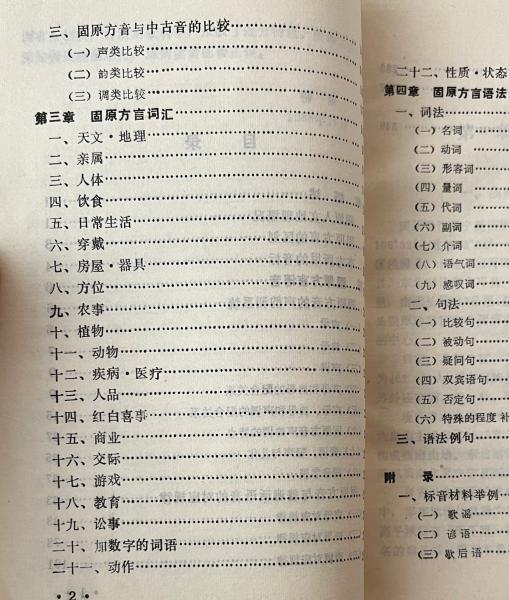 三、固原方音与中古音的比较
(一)声类比较
(二)韵类比较
(三)调类比较
第三章 固原方言词汇
一、天文·地理
二、亲属
三、人体
四、饮食
五、日常生活
六、穿戴
七、房屋·器具
八、方位
九、农事
十、植物
十一、动物
十二、疾病·医疗
十三、人品
十四、红白喜事
十五、商业
十六、交际
十七、游戏
十八、教育
十九、讼事
二十、加数字的词语
二十一、动作
·2·
二十二、性质·状态
第四章 固原方言语法
一、词法
(一)名词
(二)动词
(三)形容词
(四)量词
(五)代词
(六)副词
(七)介词
(八)语气词
(九)感叹词
二、句法
(一)比较句
(二)被动句
(三)疑问句
(四)双宾语句
(五)否定句
(六)特殊的程度补
三、语法例句
附 录
一、标音材料举例
(一)歌谣
(二)谚语
(三)歇后语